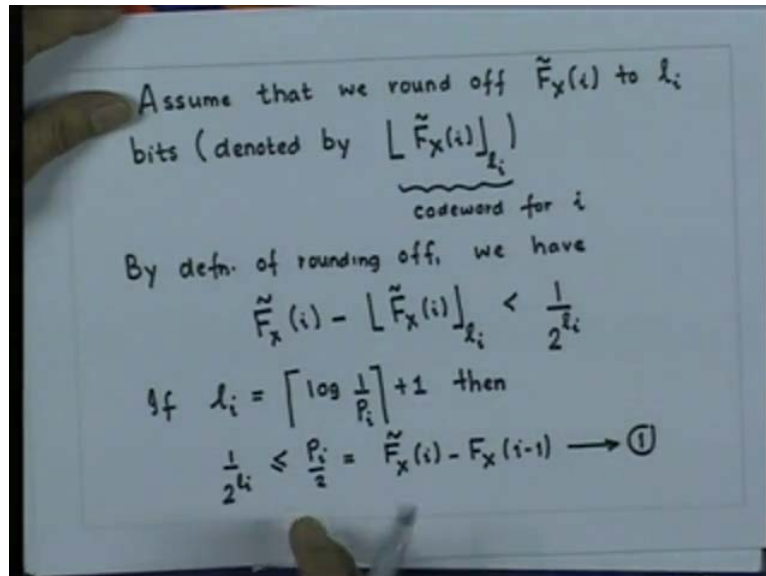 Assume that we round off F̃_X(i) to l_i
bits (denoted by ⌊F̃_X(i)⌋_{l_i})
codeword for i
By defn. of rounding off, we have
F̃_X(i) - ⌊F̃_X(i)⌋_{l_i} < 1/2^{l_i}
If l_i = ⌈log 1/P_i⌉ + 1 then
1/2^{l_i} ≤ P_i/2 = F̃_X(i) - F_X(i-1) → ①